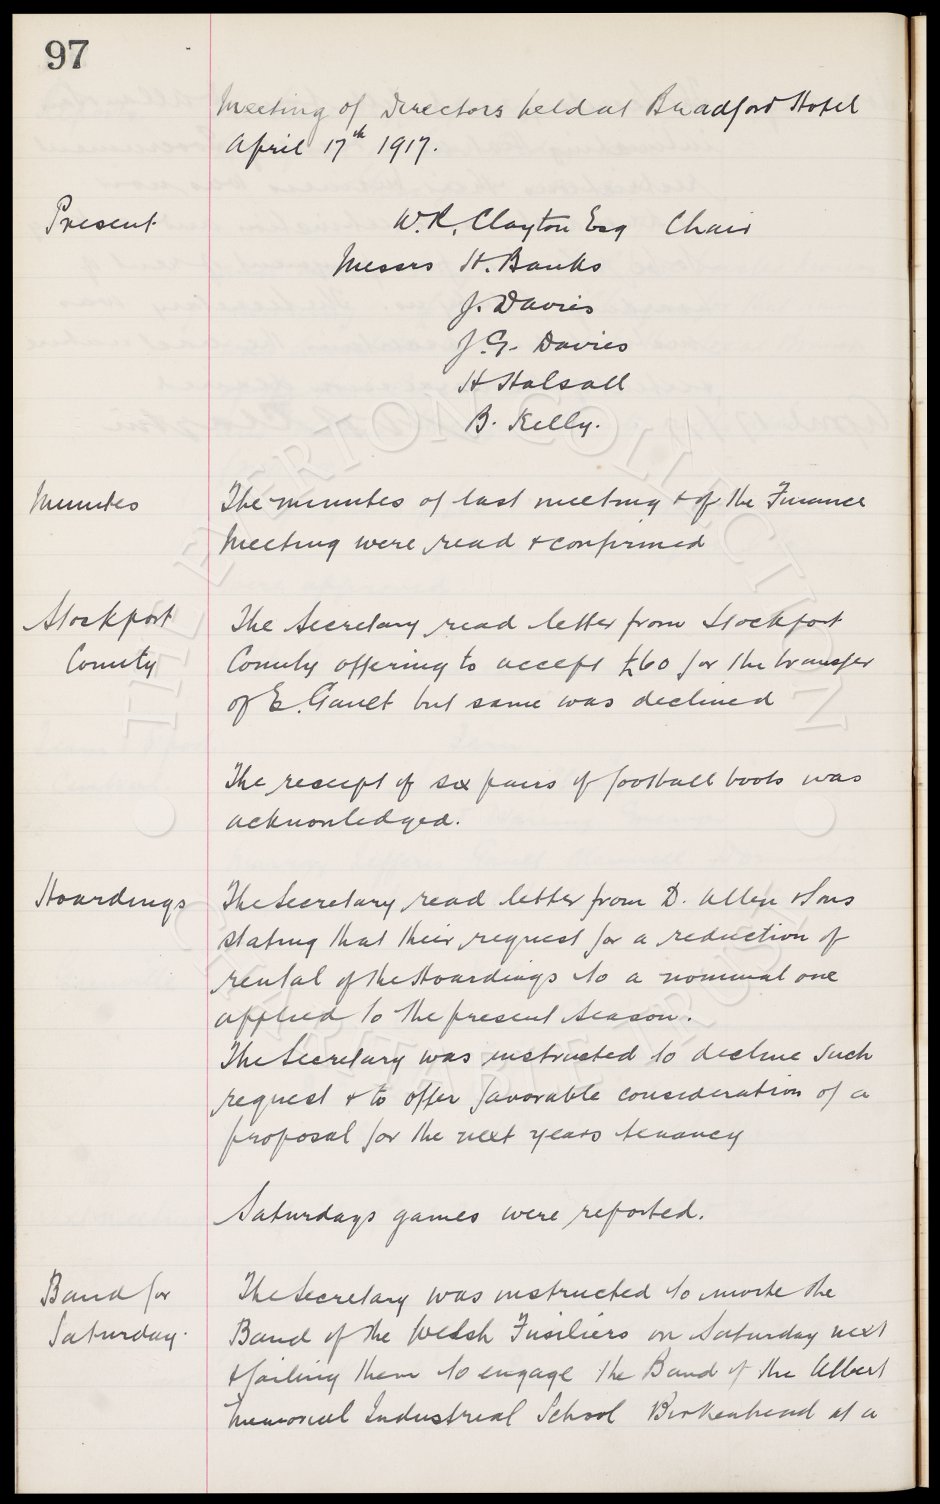 97
Meeting of Directors held at Bradford Hotel
April 17th 1917.
Present
W.R. Clayton Esq Chair
Messrs H. Banks
J. Davies
J.G. Davies
H Halsall
B. Kelly.
Minutes
The minutes of last meeting & of the Finance
Meeting were read & confirmed
Stockport
County
The Secretary read letter from Stockport
County offering to accept £60 for the transfer
of E. Gault but same was declined
The receipt of six pairs of football boots was
acknowledged.
Hoardings
The Secretary read letter from D. Allen & Sons
stating that their request for a reduction of
rental of the Hoardings to a nominal one
applied to the present season.
The Secretary was instructed to decline such
request & to offer favorable consideration of a
proposal for the next years tenancy
Saturdays games were reported.
Band for
Saturday.
The Secretary was instructed to invite the
Band of the Welsh Fusiliers on Saturday next
& failing them to engage the Band of the Albert
Memorial Industrial School Birkenhead at a
THE EVERTON COLLECTION
CHARITABLE TRUST